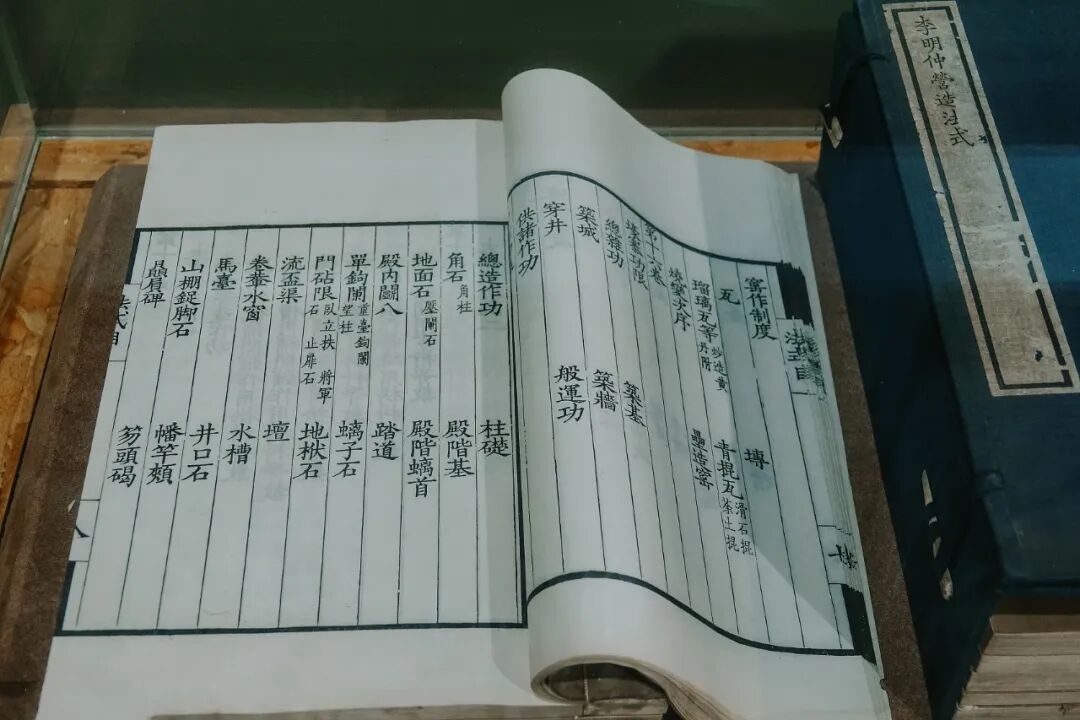 李明仲營造法式
窰作制度
瓦 塼
瑠璃瓦等 炒造黃丹附 青掍瓦 滑石掍 茶土掍
燒變次序 壘造窰
第十六卷
壕寨功限
總雜功 築基
築城 築牆
穿井 般運功
供諸作功
總造作功 柱礎
角石 角柱 殿階基
地面石 壓闌石 殿階螭首
殿內鬭八 踏道
單鉤闌 重臺鉤闌 望柱 螭子石
門砧限 臥立柣 將軍石 止扉石 地栿石
流盃渠 壇
卷輂水窗 水槽
馬臺 井口石
山棚鋜脚石 幡竿頰
贔屓碑 笏頭碣